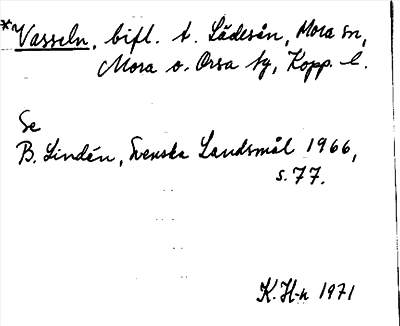 *Vasseln, bifl. t. Lådesån, Mora sn,
Mora o. Orsa tg, Kopp. l.
Se
B. Lindén, Svenska Landsmål 1966,
s. 77.
K. H-n 1971